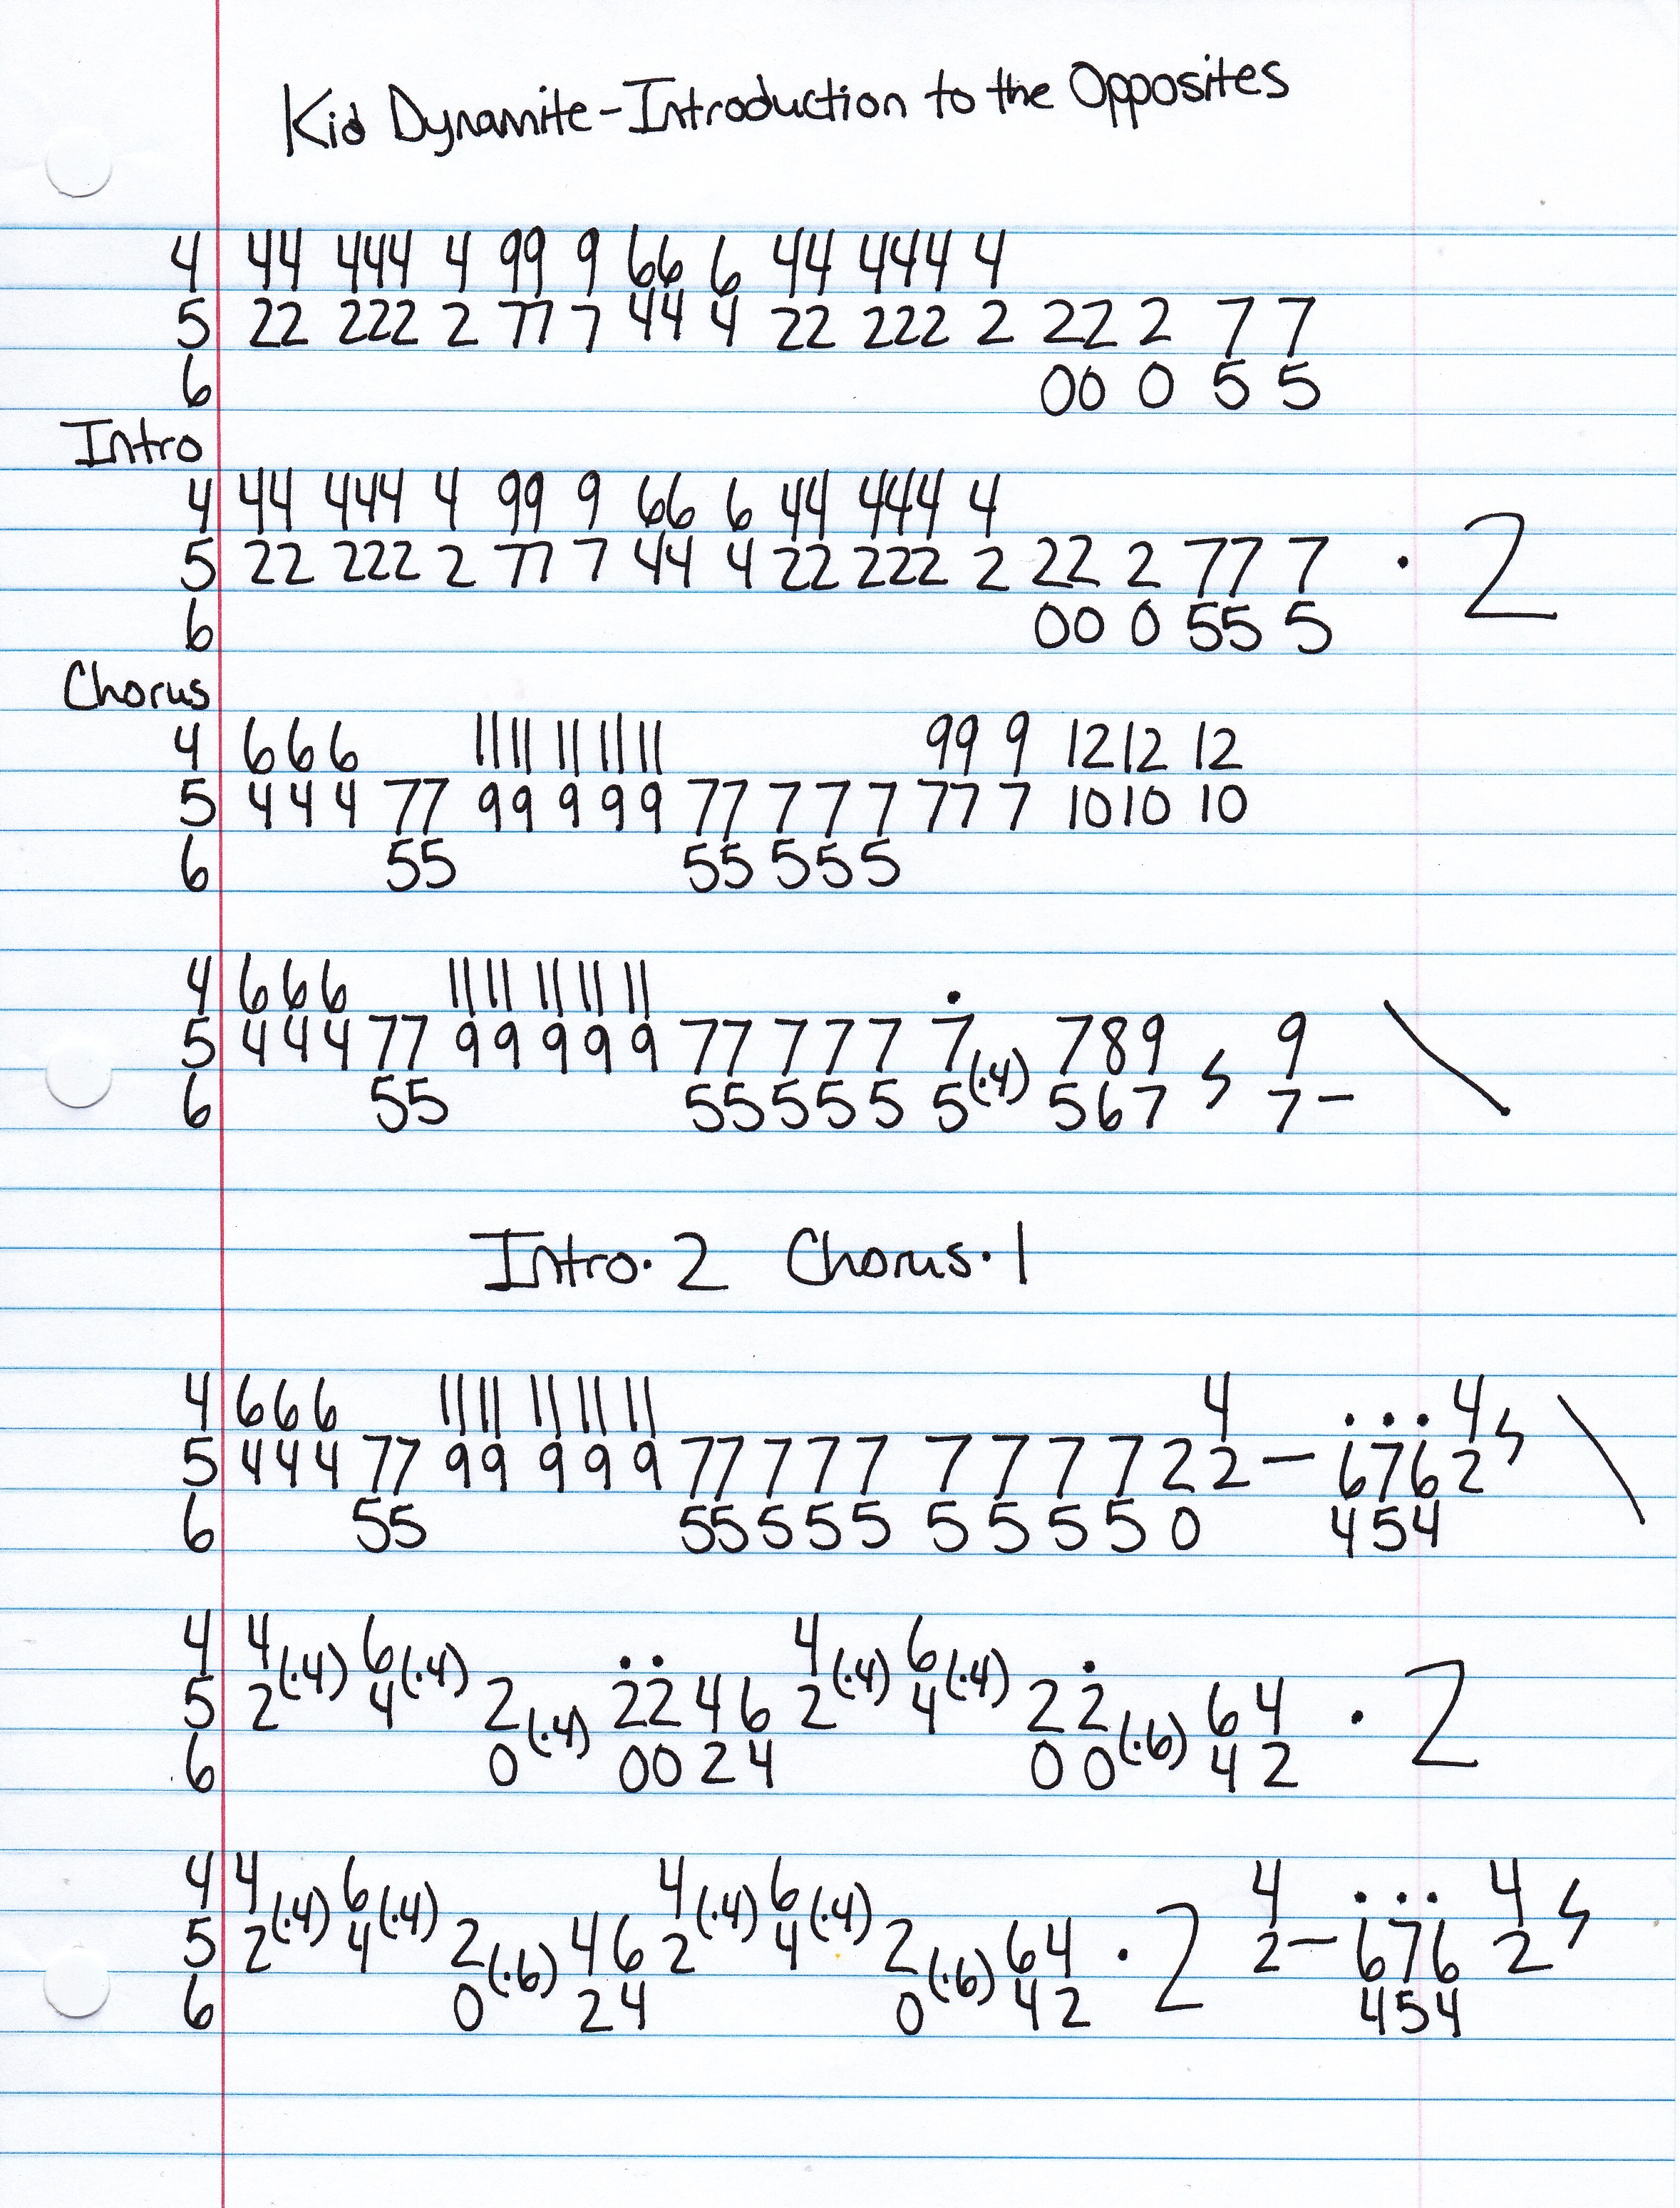 Kid Dynamite-Introduction to the Opposites
4 44 444 4 99 9 66 6 44 444 4
5 22 222 2 77 7 44 4 22 222 2 22 2 7 7
6 00 0 5 5
Intro
4 44 444 4 99 9 66 6 44 444 4
5 22 222 2 77 7 44 4 22 222 2 22 2 77 7 · 2
6 00 0 55 5
Chorus
4 6 6 6 11 11 11 11 11 99 9 12 12 12
5 4 4 4 77 99 9 9 9 77 7 7 7 77 7 10 10 10
6 55 55 5 5 5
4 6 6 6 11 11 11 11 11 ·
5 4 4 4 77 99 9 9 9 77 7 7 7 7 (·4) 789 9
6 55 55 5 5 5 5 567 7 –
Intro·2 Chorus·1
4 6 6 6 11 11 11 11 11 4 · · · 4
5 4 4 4 77 99 9 9 9 77 7 7 7 7 7 7 7 2 2 – 6 7 6 2
6 55 55 5 5 5 5 5 5 5 0 4 5 4
4 4 (·4) 6 (·4) · · 4 (·4) 6 (·4) ·
5 2 4 2 (·4) 2 2 4 6 2 4 2 2 (·6) 6 4 · 2
6 0 0 0 2 4 0 0 4 2
4 4 (·4) 6 (·4) 4 (·4) 6 (·4) 4 · · · 4
5 2 4 2 (·6) 4 6 2 4 2 (·6) 6 4 · 2 2 – 6 7 6 2
6 0 2 4 0 4 2 4 5 4